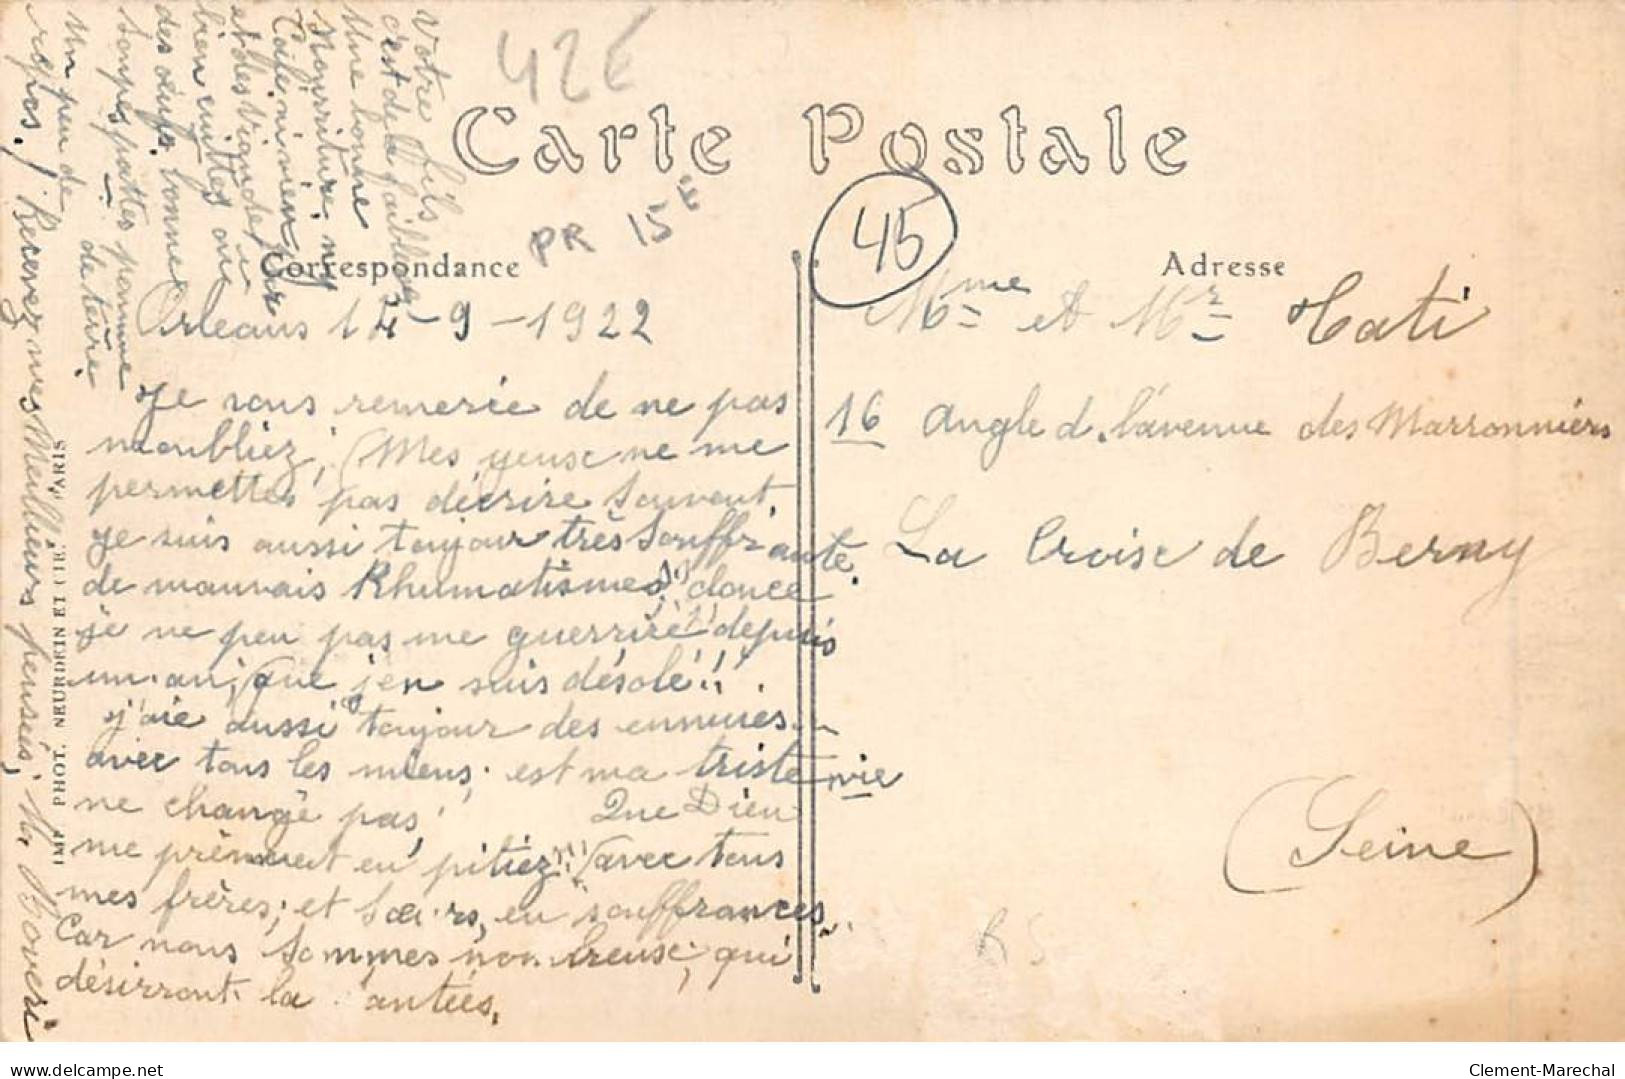 42E
Carte Postale
PR 15E
45
Correspondance
Adresse
Orléans 14-9-1922
Je vous remerçie de ne pas
m'oubliez, Mes yeuse ne me
permettes pas décrire souvent,
je suis aussi toujour très souffrante.
de mauvais Rhumatismes, donce
je ne peu pas me guerrire depuis
un an, que j'en suis désolé!!.
j'aie aussi toujour des ennuies
avec tous les miens. est ma triste vie
ne change pas, Que Dieu
me prènnent en pitiez!! avec tous
mes frères; et Sœurs, en souffrances,
Car nous sommes nonbreuse, qui
désirront la santées.
Votre fils
c'est de la faiblesse
Une bonne
Nourriture,
et des Viandes
bien cuittes ou
des œufs. bonne
soupes pattes pomme
de terre
un peu de
repos. / Recevez mes Meilleurs penseés, M. Boveri
IMP. PHOT. NEURDEIN ET CIE. PARIS
Mme et Mr Tati
16 angle d. l'avenue des Marronniers
La Croise de Berny
(Seine)
delcampe.net
Clement-Marechal